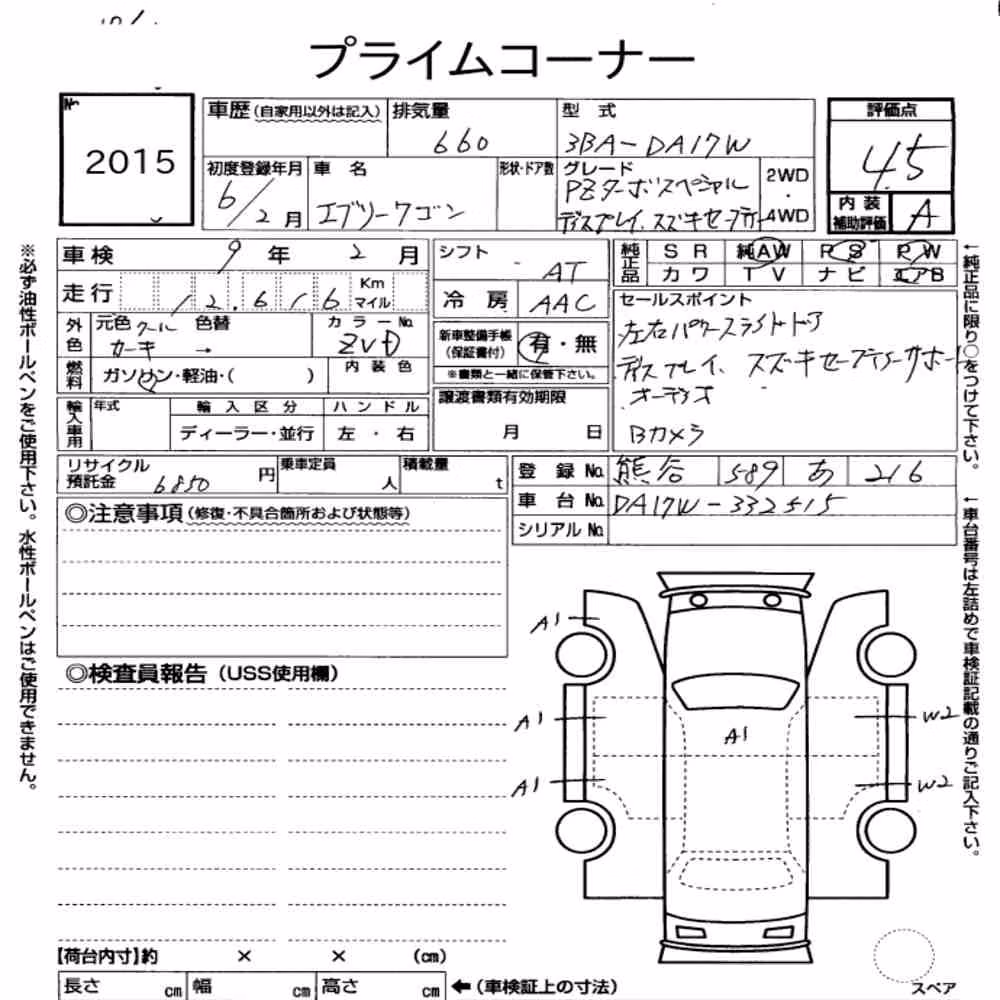 プライムコーナー
No.
2015
車歴(自家用以外は記入) 排気量 型式
660 3BA-DA17W
評価点
4.5
初度登録年月 車名 形状・ドア数 グレード 2WD
・
4WD
6/2月 エブリーワゴン PZターボスペシャル
ディスプレイ、スズキセーフティー
内装
補助評価 A
車検 9年 2月
シフト AT
純正品 SR 純AW PS PW
カワ TV ナビ エアB
走行 12,616 Km
マイル
冷房 AAC
セールスポイント
左右パワースライドドア
ディスプレイ、スズキセーフティーサポート
オーディオ
Bカメラ
外色 元色 クール 色替 カラーNo.
カーキ → ZVD
新車整備手帳
(保証書付) 有・無
※書類と一緒に保管下さい。
燃料 ガソリン・軽油・( ) 内装色
譲渡書類有効期限
月 日
輸入車用 年式 輸入区分 ハンドル
ディーラー・並行 左・右
リサイクル
預託金 6850円 乗車定員 人 積載量 t
登録No. 熊谷 589 あ 216
車台No. DA17W-332515
シリアルNo.
◎注意事項(修復・不具合箇所および状態等)
◎検査員報告(USS使用欄)
A1
A1
A1
A1
W2
W2
スペア
【荷台内寸】約 × × (cm)
長さ cm 幅 cm 高さ cm ←(車検証上の寸法)
※必ず油性ボールペンをご使用下さい。水性ボールペンはご使用できません。
←純正品に限り○をつけて下さい。
←車台番号は左詰めで車検証記載の通りご記入下さい。